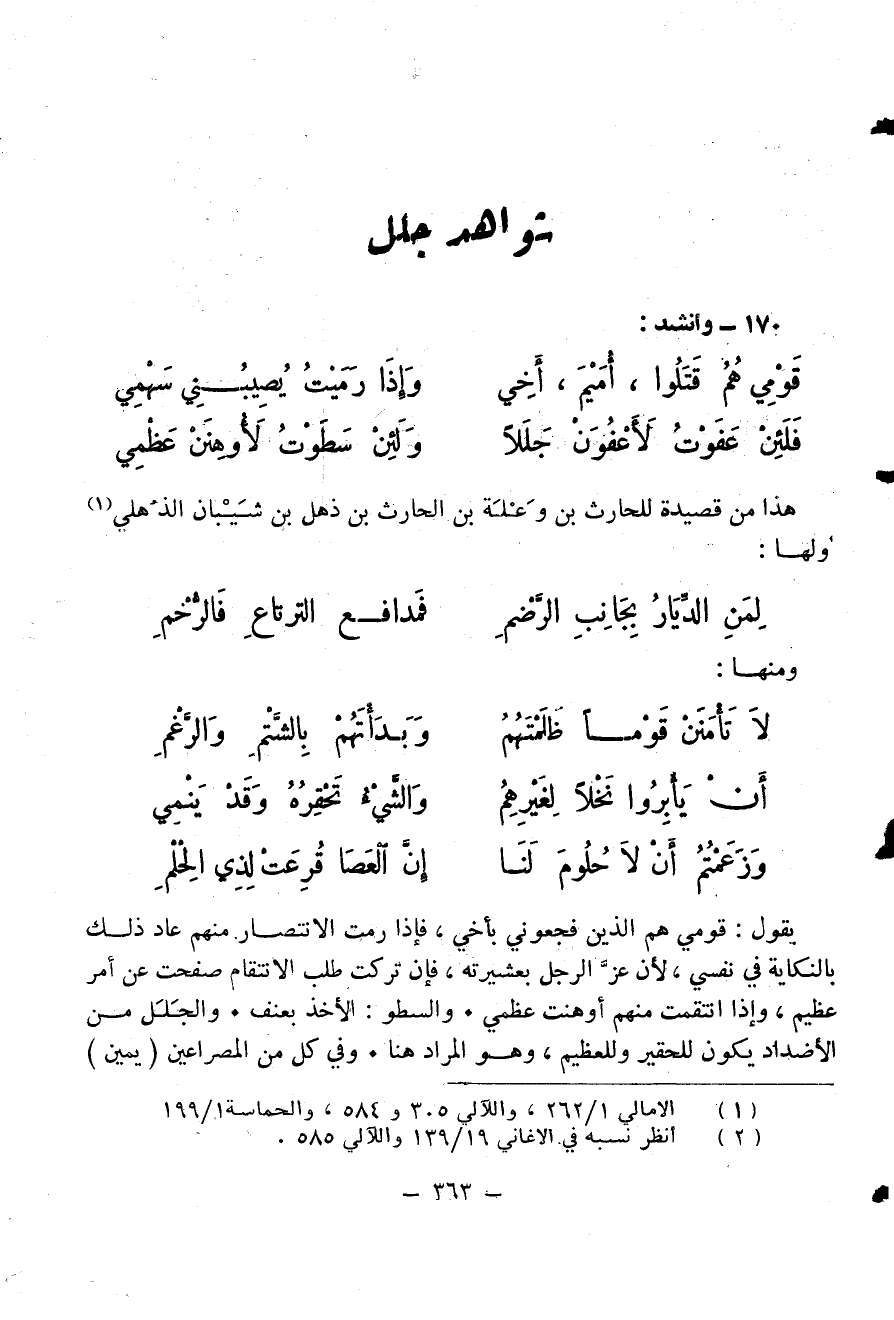 شواهد جلل
١٧٠ – وأنشد :
قَوْمِي هُمُ قَتَلُوا ، أُمَيْمَ ، أَخِي وَإِذَا رَمَيْتُ يُصِيبُـــنِي سَهْمِي
فَلَئِنْ عَفَوْتُ لَأَعْفُوَنْ جَلَلاً وَلَئِنْ سَطَوْتُ لَأُوهِنَنْ عَظْمِي
هذا من قصيدة للحارث بن وَعْلَة بن الحارث بن ذهل بن شَيْبان الذُهلي(١)
أولهـا :
لِمَنِ الدِّيَارُ بِجَانِبِ الرَّضْمِ فَمدافـــع الترتاعِ فَالرُّخْمِ
ومنهـا :
لاَ تَأْمَنَنْ قَوْمـــاً ظَلَمْتَهُمُ وَبَـدَأْتَهُمْ بِالشَّتْمِ وَالرَّغْمِ
أَنْ يَأْبِرُوا نَخْلاً لِغَيْرِهِمُ وَالشَّيْءُ تَحْقِرُهُ وَقَدْ يَنْمِي
وَزَعَمْتُمُ أَنْ لاَ حُلُومَ لَنَـا إِنَّ ٱلْعَصَا قُرِعَتْ لِذِي الْحُلْمِ
يقول : قومي هم الذين فجعوني بأخي ، فإذا رمت الانتصـار منهم عاد ذلـك
بالنكاية في نفسي ، لأن عزَّ الرجل بعشيرته ، فإن تركت طلب الانتقام صفحت عن أمر
عظيم ، وإذا انتقمت منهم أوهنت عظمي • والسطو : الأخذ بعنف • والجَلَل مـن
الأضداد يكون للحقير وللعظيم ، وهـو المراد هنا • وفي كل من المصراعين ( يمين )
(١) الامالي ٢٦٢/١ ، واللآلي ٣٠٥ و ٥٨٤ ، والحماسة ١٩٩/١
(٢) أنظر نسبه في الاغاني ١٣٩/١٩ واللآلي ٥٨٥ .
– ٣٦٣ –